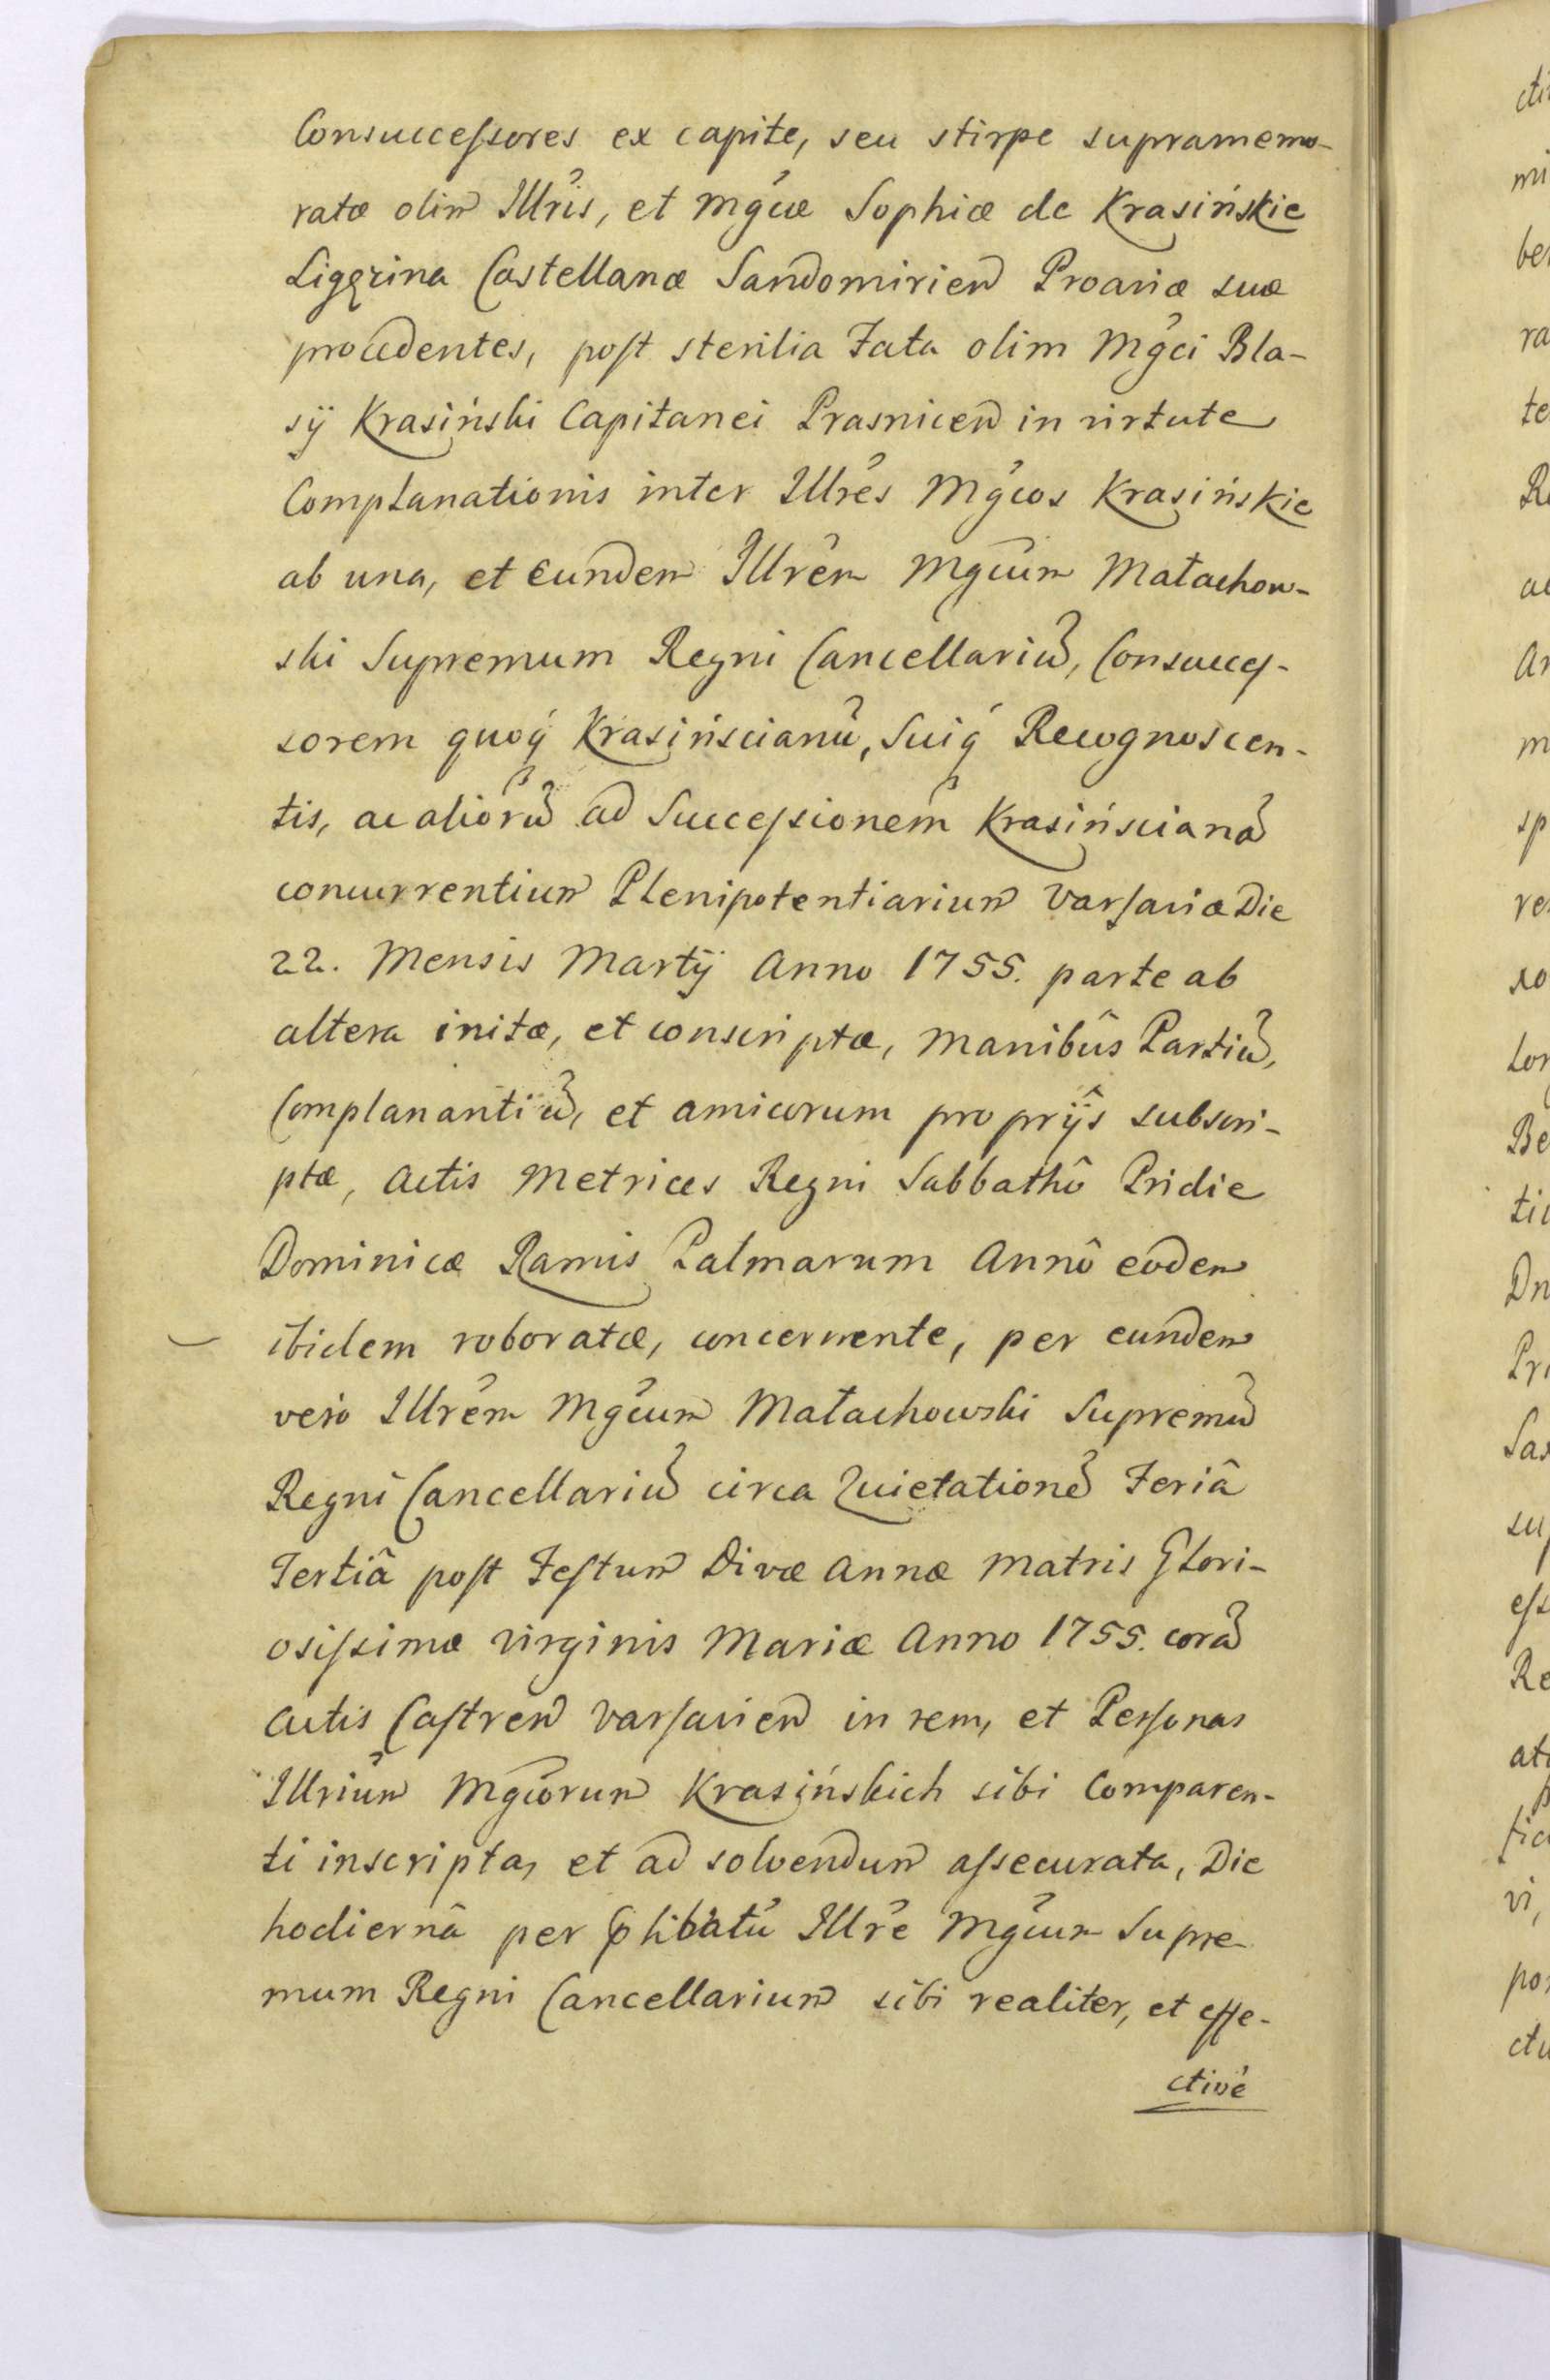 Consuccessores ex capite, seu stirpe supramemo-
ratæ olim Illris, et Mgcæ Sophiæ de Krasińskie
Ligęzina Castellanæ Sandomirien Proaviæ suæ
procedentes, post sterilia Fata olim Mgci Bla-
sÿ Krasiński Capitanei Prasnicen in virtute
Complanationis inter Illres Mgcos Krasińskie
ab una, et Eundem Illrem Mgcum Małachow-
ski Supremum Regni Cancellariū, Consucces-
sorem quoq́ Krasińscianū, Suiq́ Recognoscen-
tis, ac aliorū ad Successionem Krasińscianā
concurrentium Plenipotentiarium Varsaviæ Die
22. Mensis Martÿ Anno 1755. parte ab
altera initæ, et conscriptæ, manibûs Partiū,
Complanantiū, et amicorum proprÿs subscri-
ptæ, Actis Metrices Regni Sabbathô Pridie
Dominicæ Ramis Palmarum Annô eodem
ibidem roboratæ, concernente, per eundem
vero Illrem Mgcum Małachowski Supremū
Regni Cancellariū circa Quietationē Feriâ
Tertiâ post Festum Divæ Annæ Matris Glori-
osissimæ Virginis Mariæ Anno 1755. corā
Actis Castren Varsavien in rem, et Personas
Illrium Mgcorum Krasińskich sibi Comparen-
ti inscripta, et ad solvendum assecurata, Die
hodiernâ per libatū Illre Mgcum Supre
mum Regni Cancellarium sibi realiter, et effe-
ctivè
cti
mi
ber
ra
te
ac
m
sp
re
lor
Be
Dn
Pri
Sax
sup
Re
vi,
por
ctu